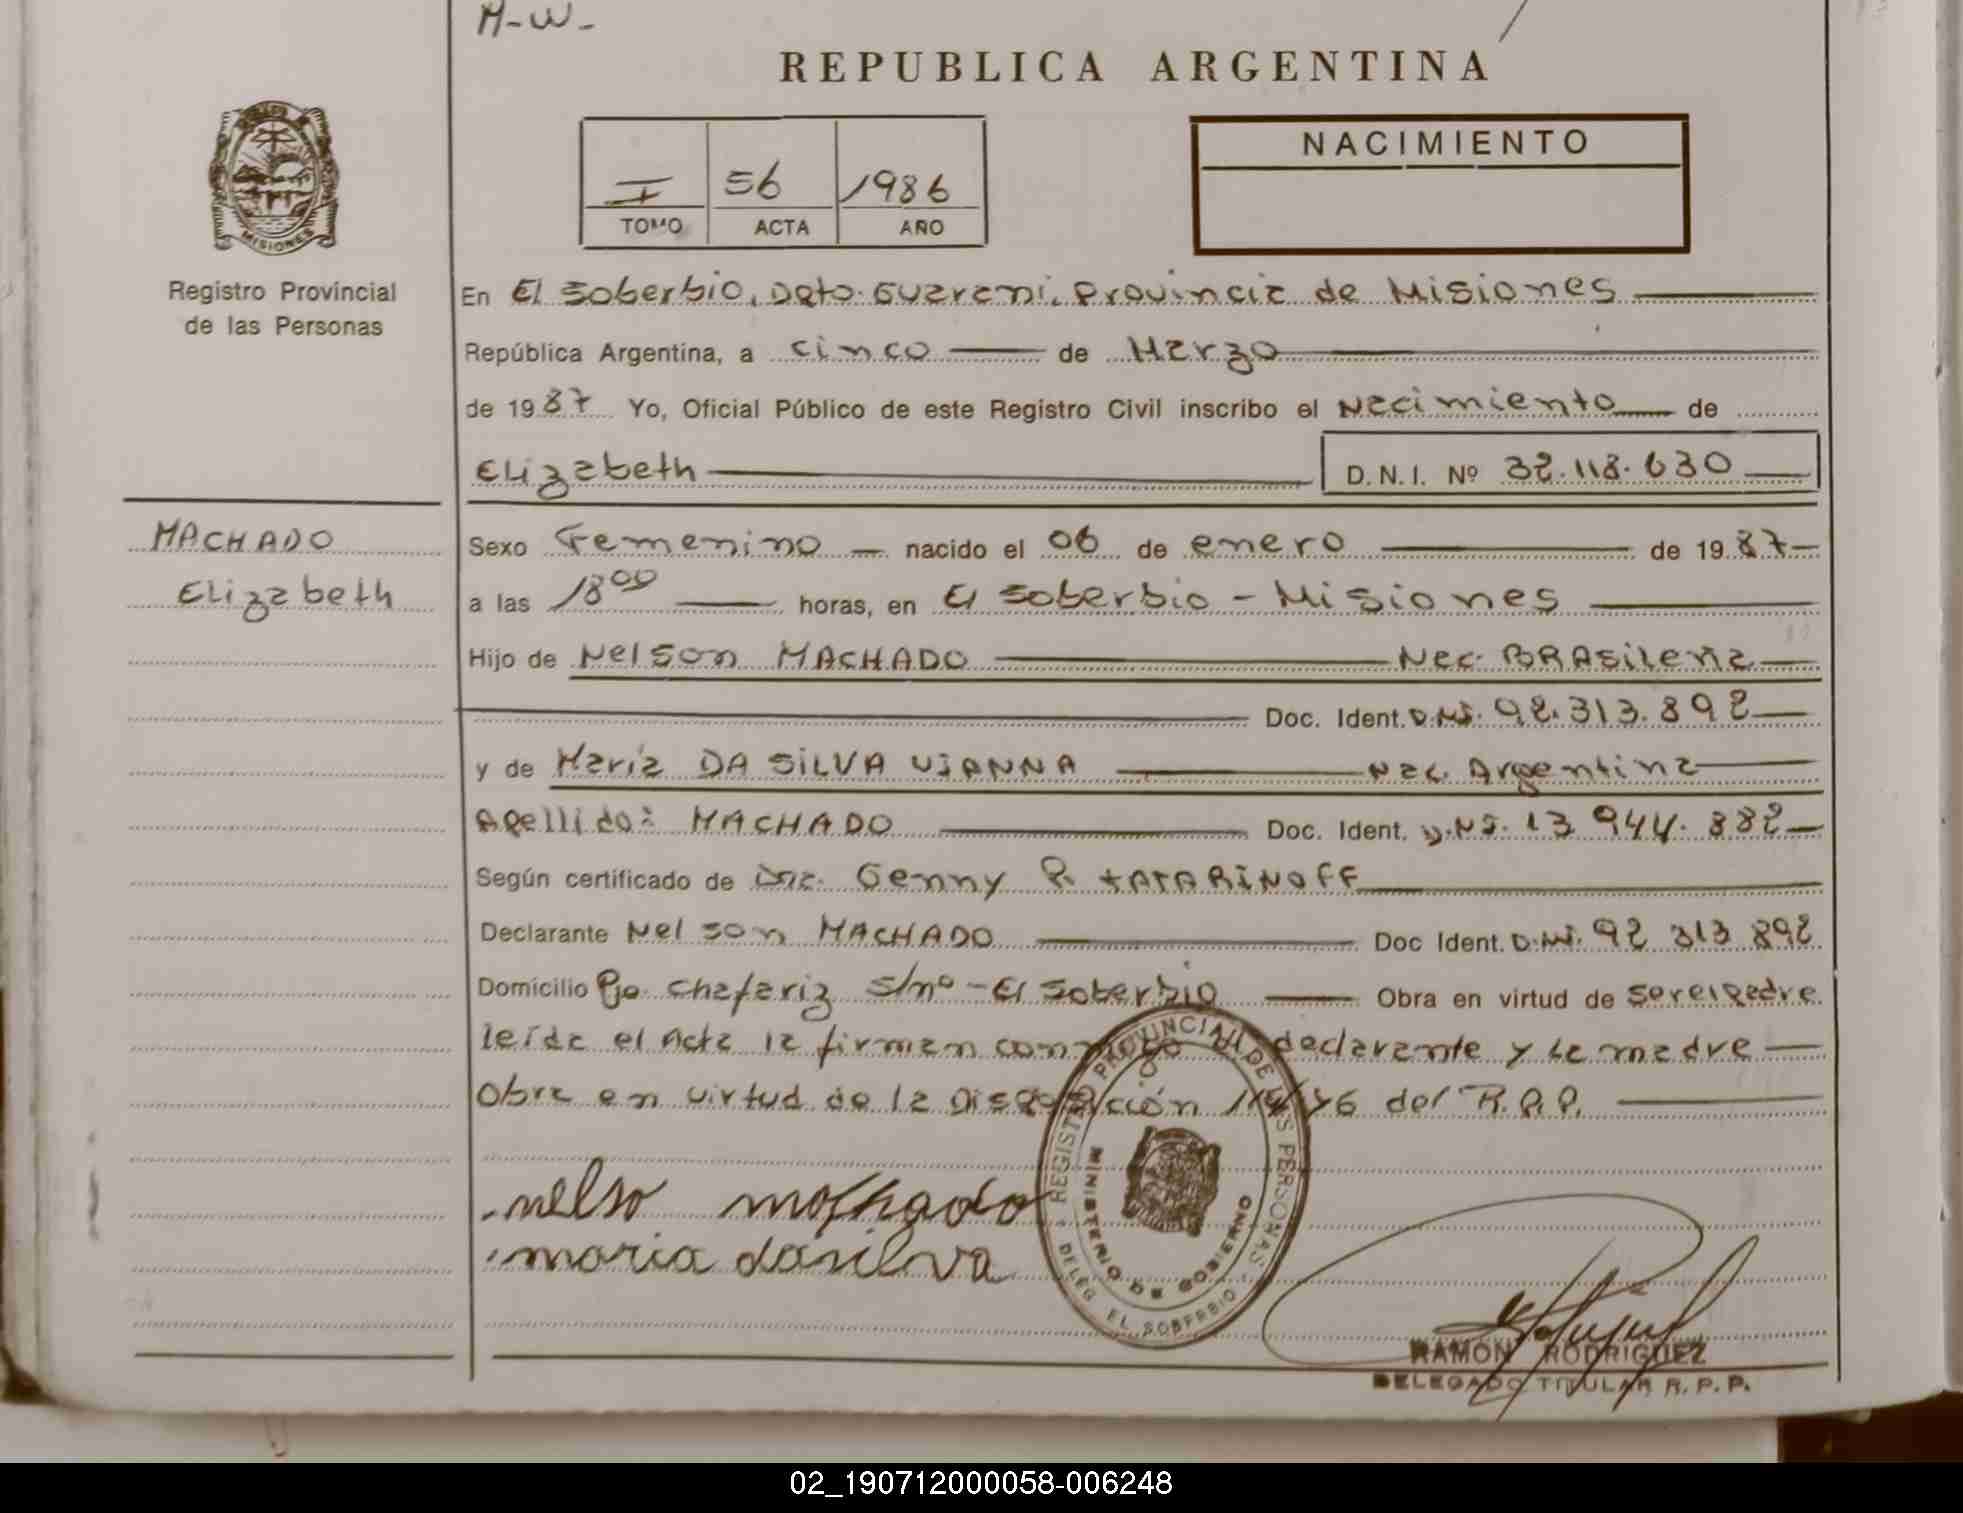 H-W-
REPUBLICA ARGENTINA
I 56 1986
TOMO ACTA AÑO
NACIMIENTO
MISIONES
Registro Provincial
de las Personas
En El Soberbio, Dpto. Guarani, Provincia de Misiones
República Argentina, a cinco de Marzo
de 1987 Yo, Oficial Público de este Registro Civil inscribo el Nacimiento de
Elizabeth D.N.I. Nº 32.118.630
MACHADO
Elizabeth
Sexo Femenino nacido el 06 de enero de 1987
a las 18 00 horas, en El Soberbio - Misiones
Hijo de Nelson MACHADO Nac. BRAsileña
Doc. Ident. D.N.I. 92.313.892
y de María DA SiLVA ViANNA Nac. Argentina
Apellido: MACHADO Doc. Ident. D.N.I. 13 944. 882
Según certificado de Dra. Genny R. tATARiNOFF
Declarante Nelson MACHADO Doc Ident. D.N.I. 92 313 892
Domicilio Pje. Chafariz s/nº - El Soberbio Obra en virtud de ser el padre
leída el Acta la firman conmigo el declarante y la madre
Obra en virtud de la Disposición 114/76 del R.P.P.
REGISTRO PROVINCIAL DE LAS PERSONAS
MINISTERIO DE GOBIERNO
DELEG. EL SOBERBIO
nelso mathado
maria dasilva
RAMON RODRIGUEZ
DELEGADO TITULAR R. P. P.
02_190712000058-006248